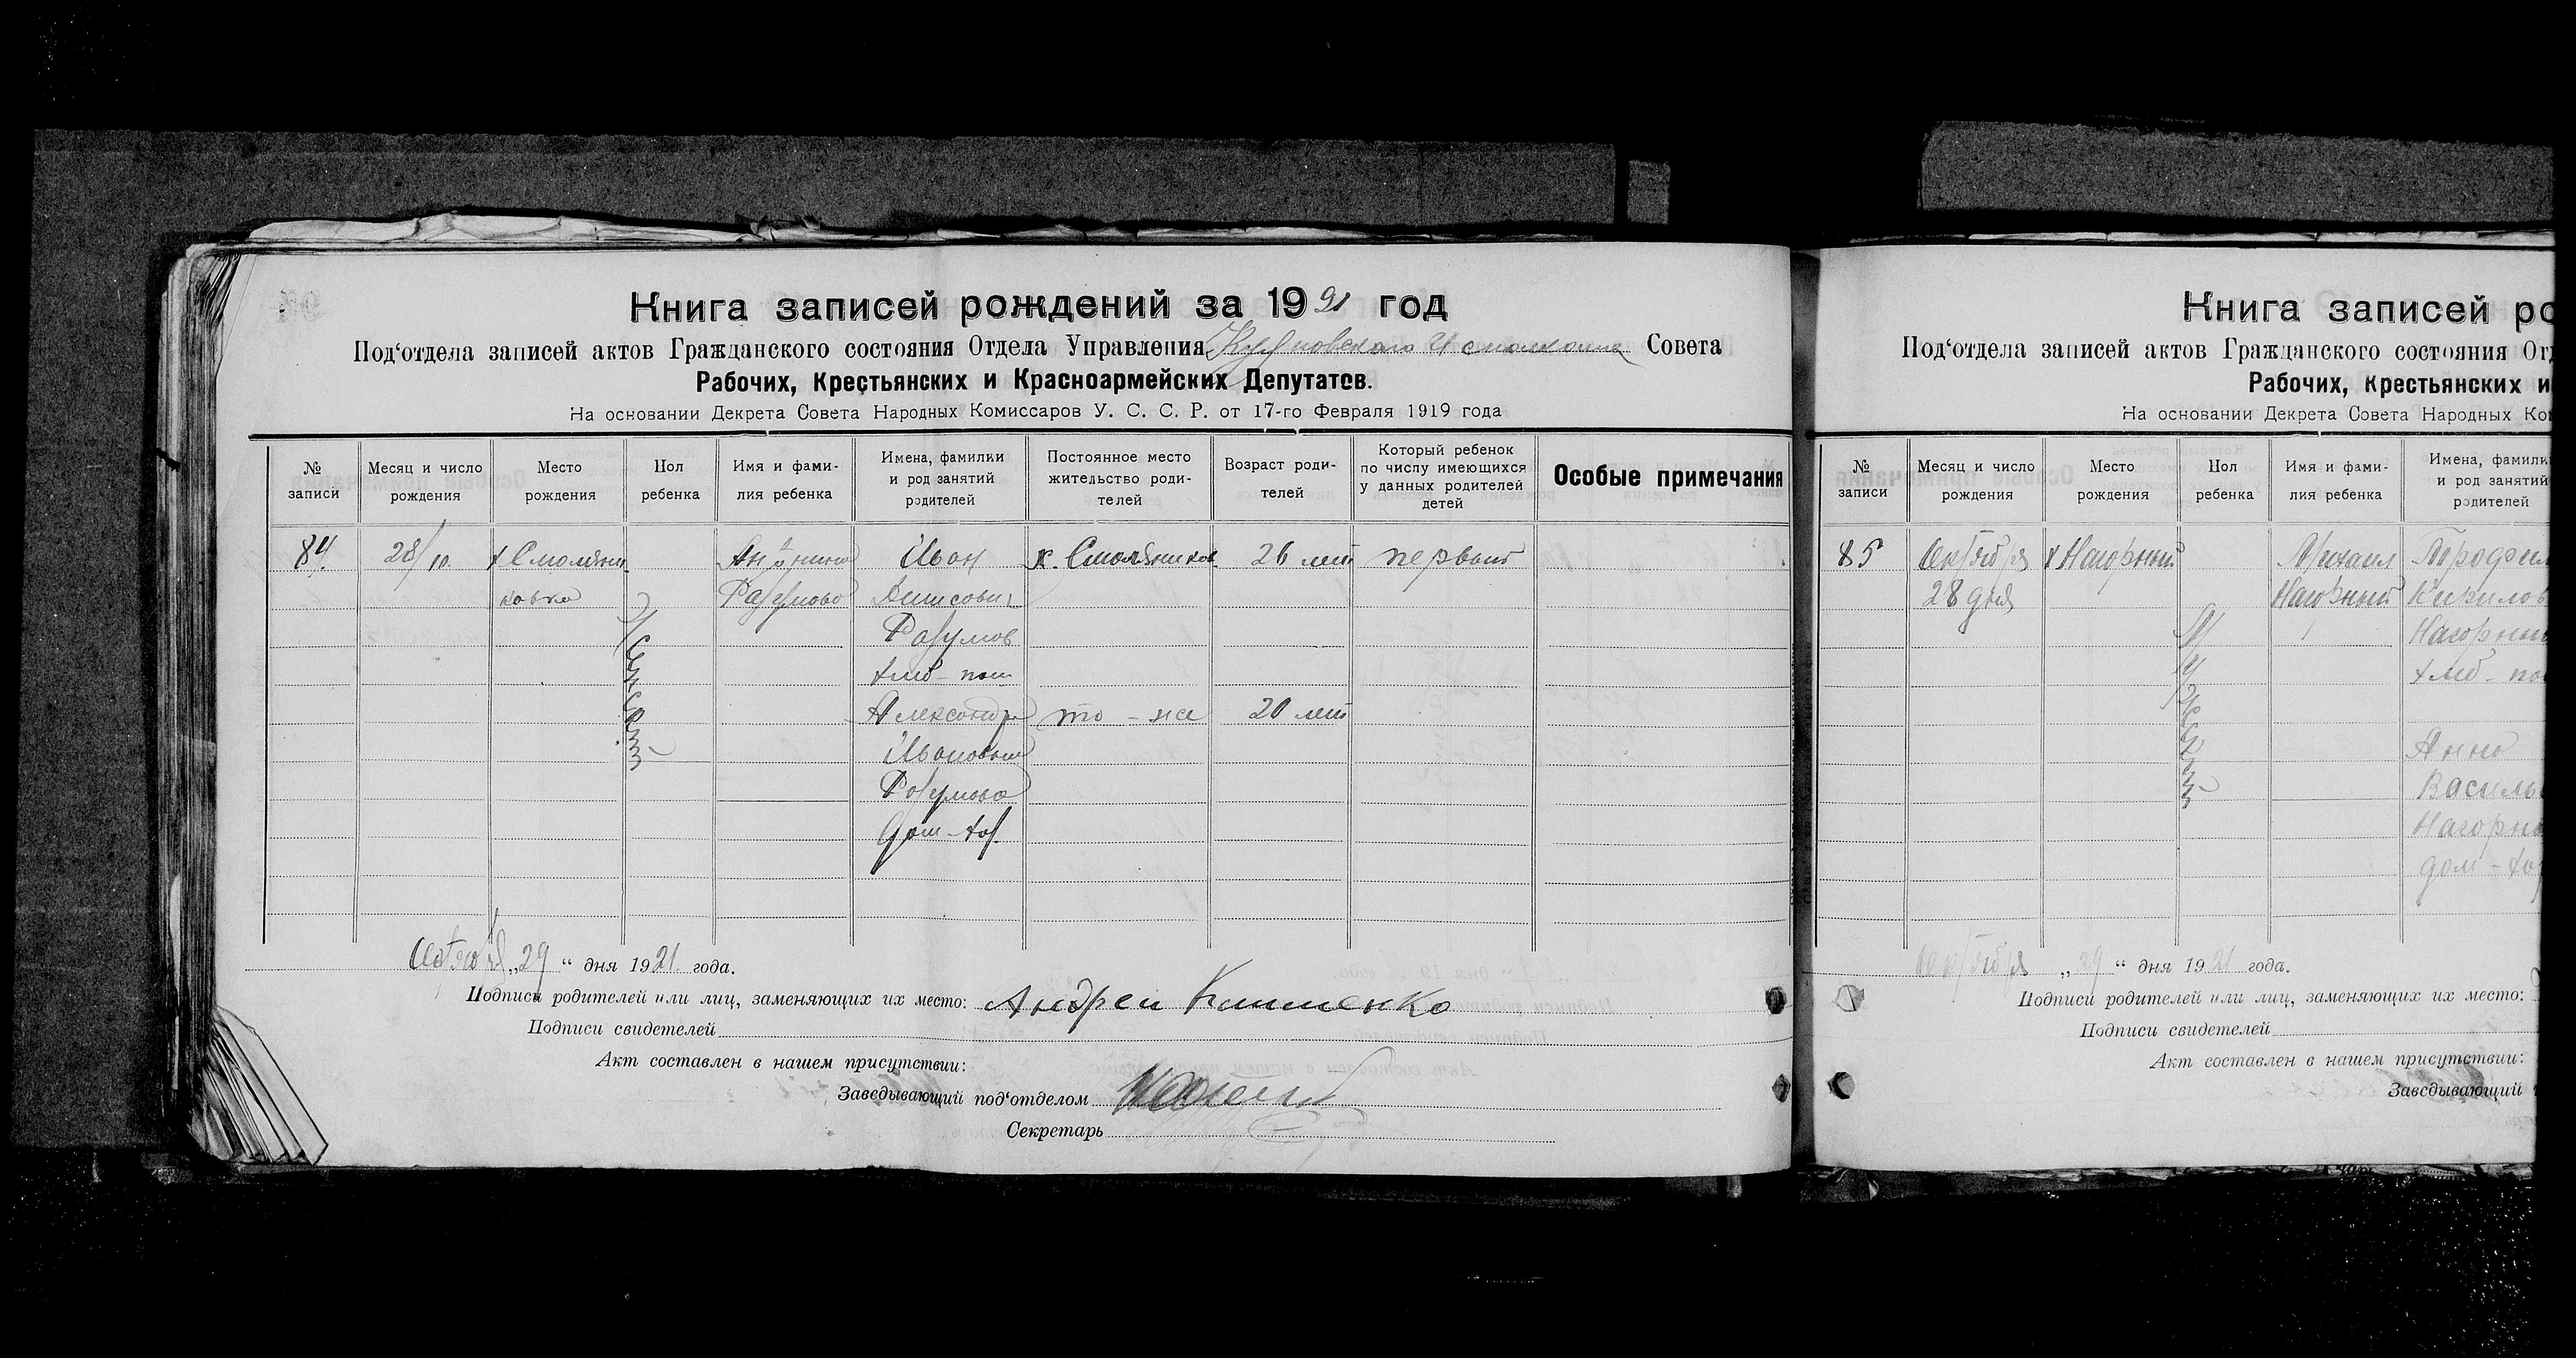 Книга записей рождений за 1921 год
Под‘отдела записей актов Гражданского состояния Отдела Управления Совета
Рабочих, Крестьянских и Красноармейских Депутатов.
На основании Декрета Совета Народных Комиссаров У. С. С. Р. от 17-го Февраля 1919 года
№ записи
Месяц и число рождения
Место рождения
Пол ребенка
Имя и фамилия ребенка
Имена, фамилии и род занятий родителей
Постоянное место жительство родителей
Возраст родителей
Который ребенок по числу имеющихся у данных родителей детей
Особые примечания
84. 28/10. х Смоляни- Иван х. Смоляников 26 лет первый
ковка Разумова Денисович
Разумов
хлеб-паш
Александра то-же 20 лет
Ивановна
Разумова
дом-хоз.
Женский
Октября „29“ дня 1921 года.
Подписи родителей или лиц, заменяющих их место: Андрей Клименко
Подписи свидетелей
Акт составлен в нашем присутствии:
Заведывающий под‘отделом
Секретарь
Книга записей ро
Под‘отдела записей актов Гражданского состояния От
Рабочих, Крестьянских и
На основании Декрета Совета Народных Ко
№ записи
Месяц и число рождения
Место рождения
Пол ребенка
Имя и фамилия ребенка
Имена, фамили и род занятий родителей
85 Октября х Нагорный Михаил Трофим
28 дня Нагорный Кирилов
Нагорный
хлеб-па
Анна
Василь
Нагорна
дом-хоз
Мужской
Октября „29“ дня 1921 года.
Подписи родителей или лиц, заменяющих их место:
Подписи свидетелей
Акт составлен в нашем присутствии:
Заведывающий